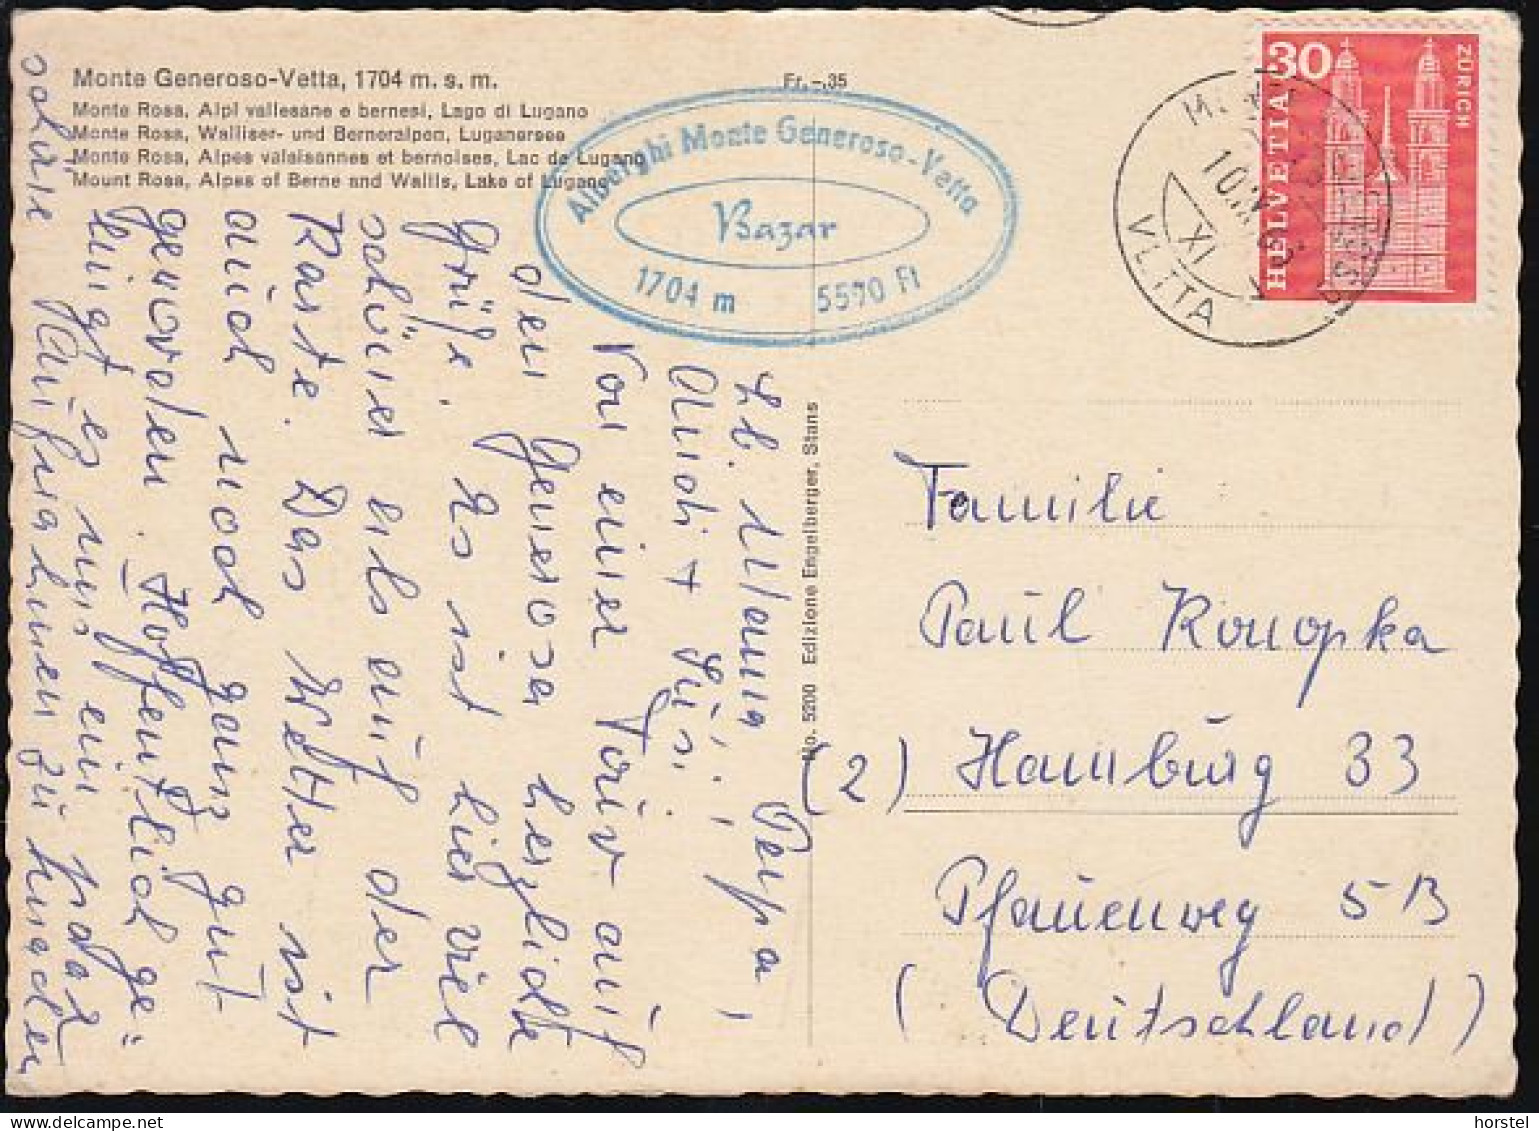 Monte Generoso-Vetta, 1704 m. s. m.
Monte Rosa, Alpi vallesane e bernesi, Lago di Lugano
Monte Rosa, Walliser- und Berneralpen, Luganersee
Monte Rosa, Alpes valaisannes et bernoises, Lac de Lugano
Mount Rosa, Alpes of Berne and Wallis, Lake of Lugano
Fr. -.35
Alberghi Monte Generoso-Vetta
Bazar
1704 m 5590 Ft
HELVETIA 30
ZÜRICH
VETTA
XI
No. 5200 Edizione Engelberger, Stans
Lb. Mama, Papa,
+ Susi,
Von einer Tour auf
den Generosa herzlichte
Grüße. Es ist hier viel
schöner als auf der
Karte. Das Wetter ist
auch noch ganz gut
geworden. Hoffentlich ge=
lingt es uns ein paar
schöne Aufnahmen zu machen
Familie
Paul Konopka
(2) Hamburg 33
Pfauenweg 5B
(Deutschland)
horstel